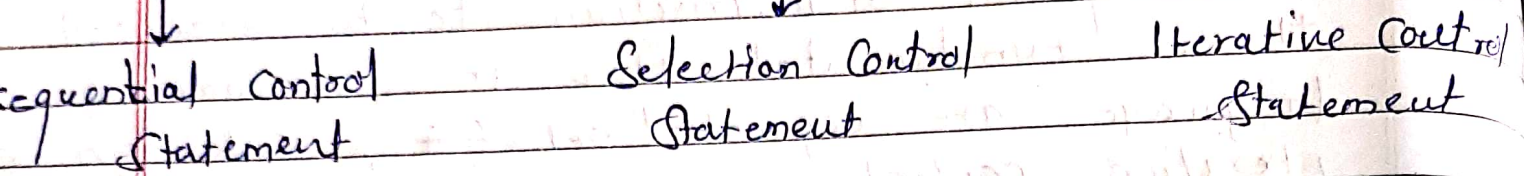 Sequential Control
Statement
Selection Control
Statement
Iterative Control
Statement